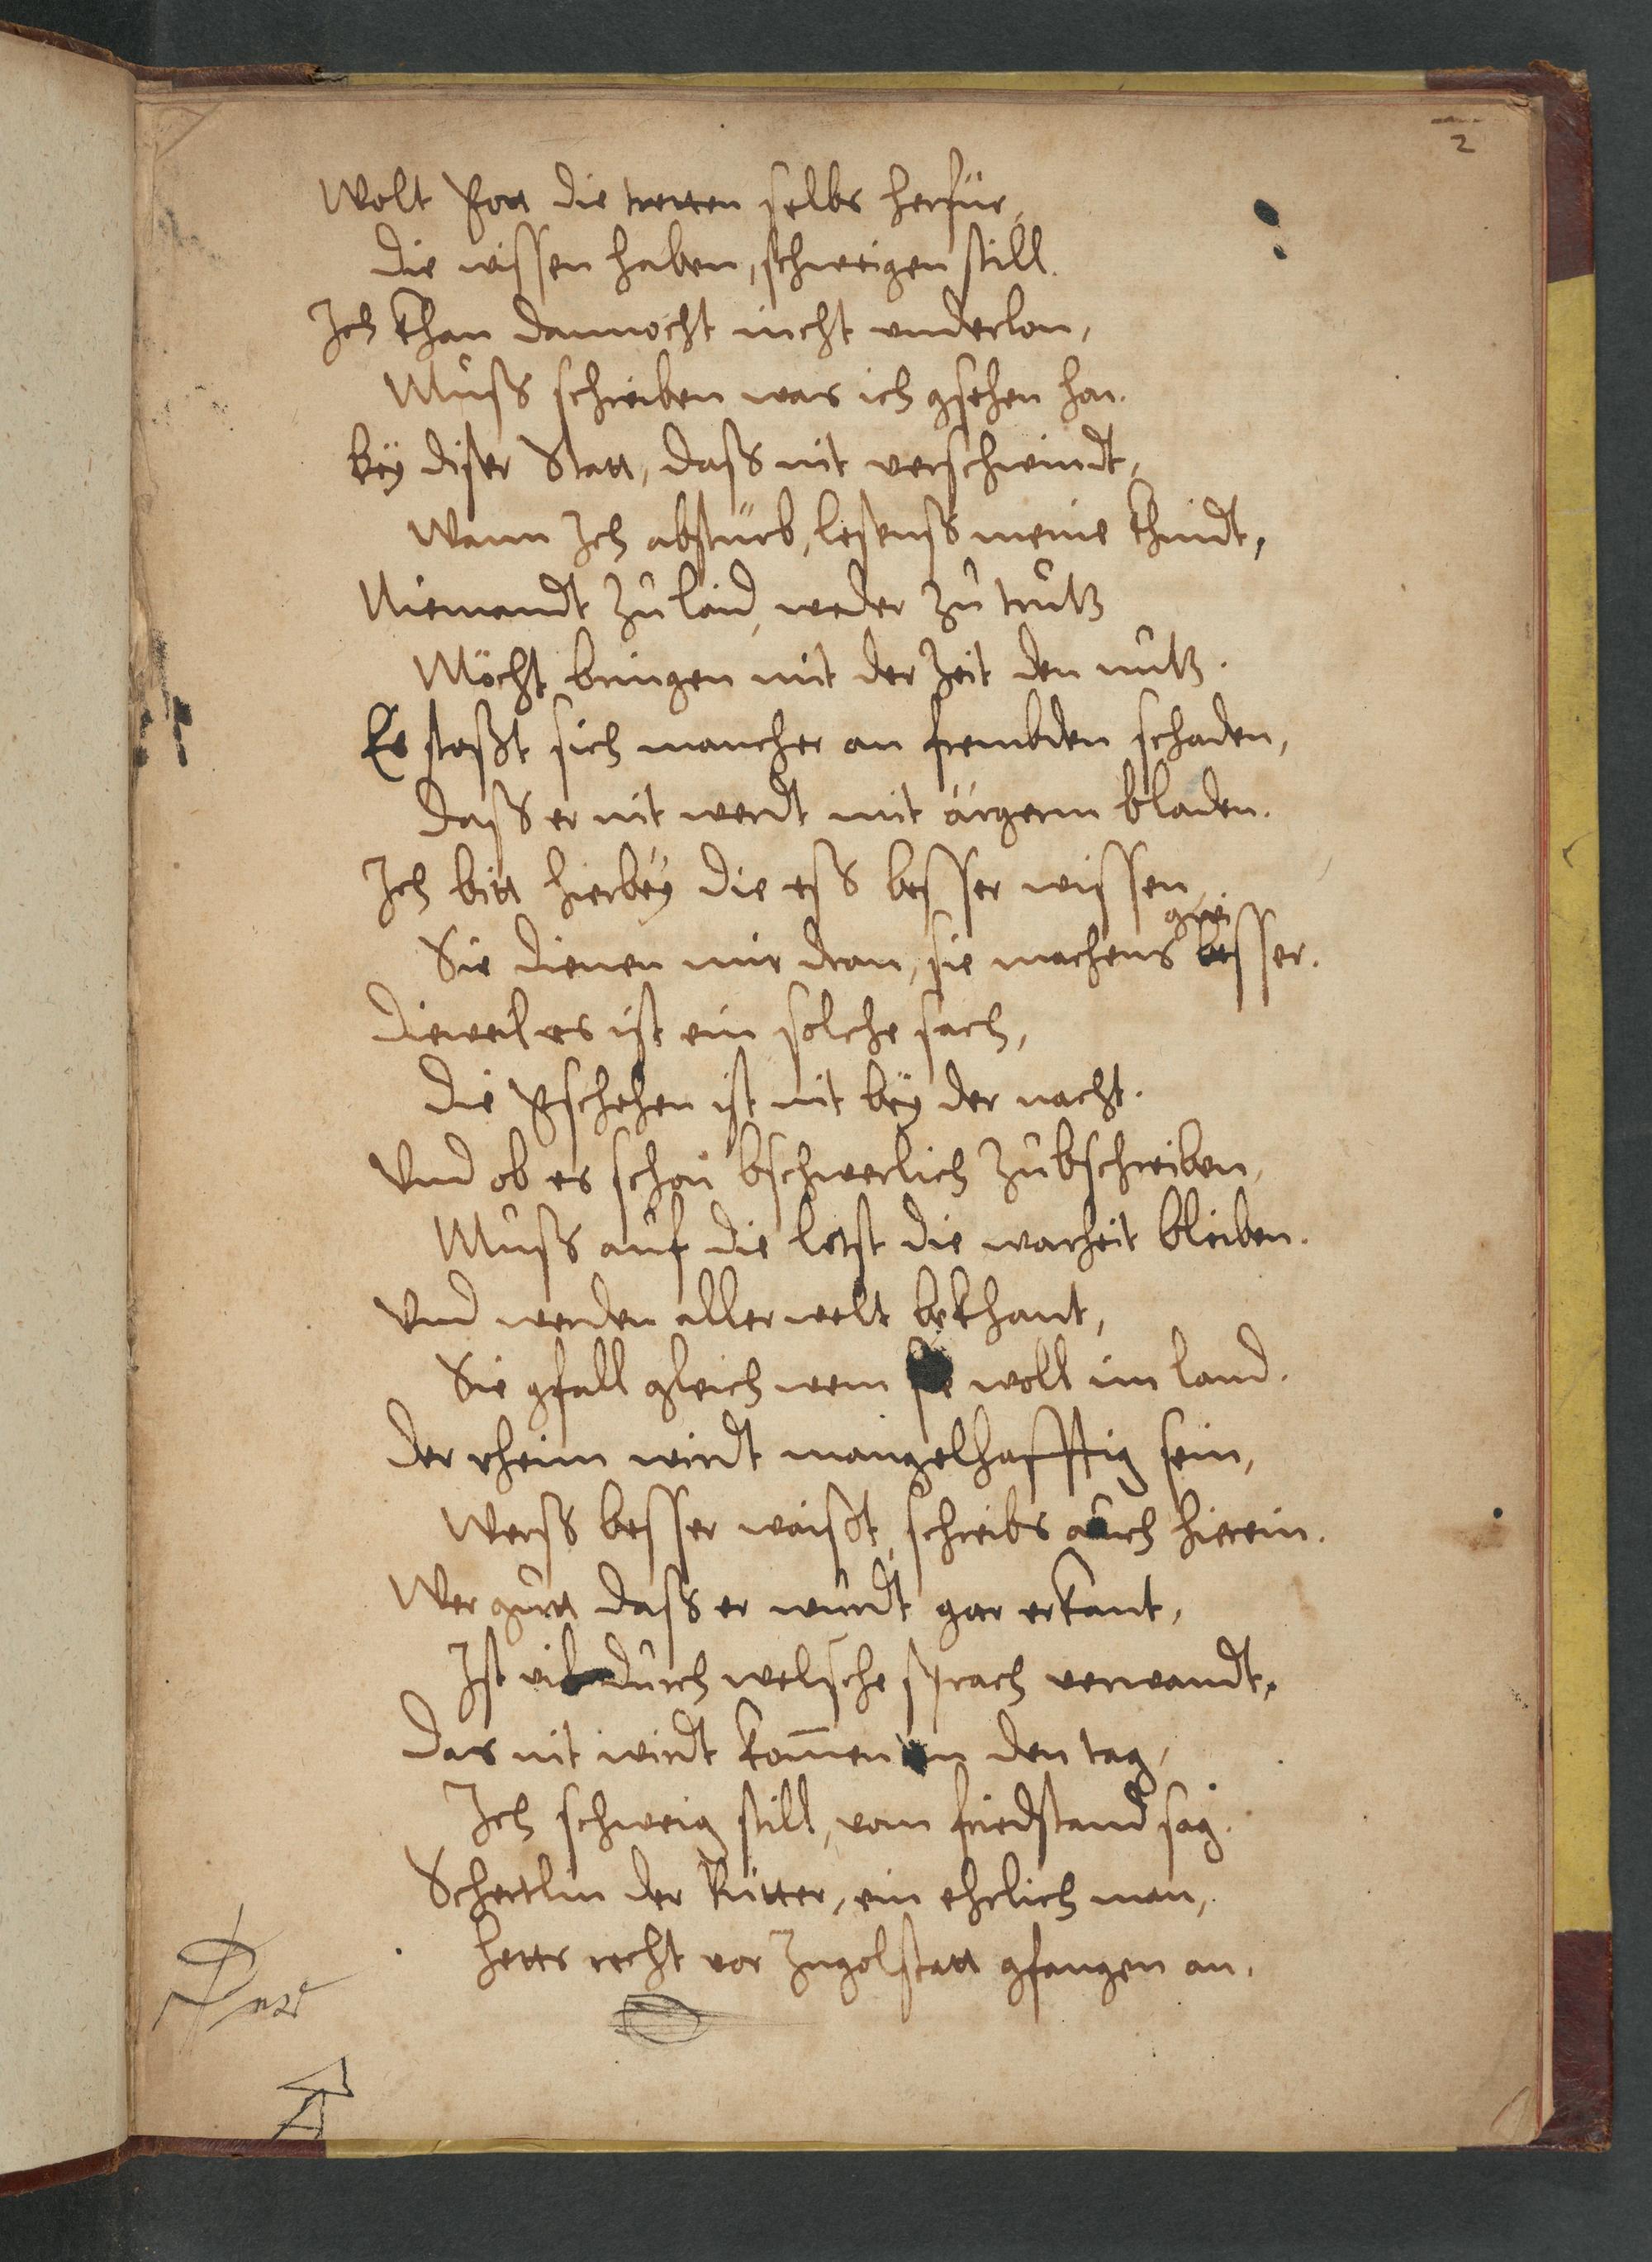 2
Wolt Gott die tretten selbs herfür,
die wissen haben, schweigen still.
Ich khan dannocht nicht underlon,
Muß schreiben was ich gsehen han.
bey diser Statt, daß nit verschwindt,
Wann Ich absturb, lesenß meine khindt,
Niemandt zu laid, weder zu trutz
Möcht bringen mit der Zeit den nutz.
Es stoßt sich mancher an frembden schaden,
daß er nit werdt mit ärgerm bladen.
Ich bitt hierbey die eß besser wissen,
gwi
Sie dienen mir dran, sie machens besser.
dieweil es ist ein solche sach,
die Gschehen ist nit bey der nacht.
Und ob es schon bschwerlich zubschreiben,
Muß auf die letst die warheit bleiben.
Und werden aller welt bekhant,
Sie gfall gleich wem sie woll im land.
der rheim wirdt mangelhafftig sein,
Werß besser waißt, schreibs auch hierein.
Wer gutt daß er wurdt gar erkant,
Ist vil durch welsche sprach verwandt,
das nit wirdt kom̅en an den tag,
Ich schweig still, vom fridstand sag.
Schertlin der Ritter, ein ehrlich man,
hetts recht vor Ingolstatt gfangen an.